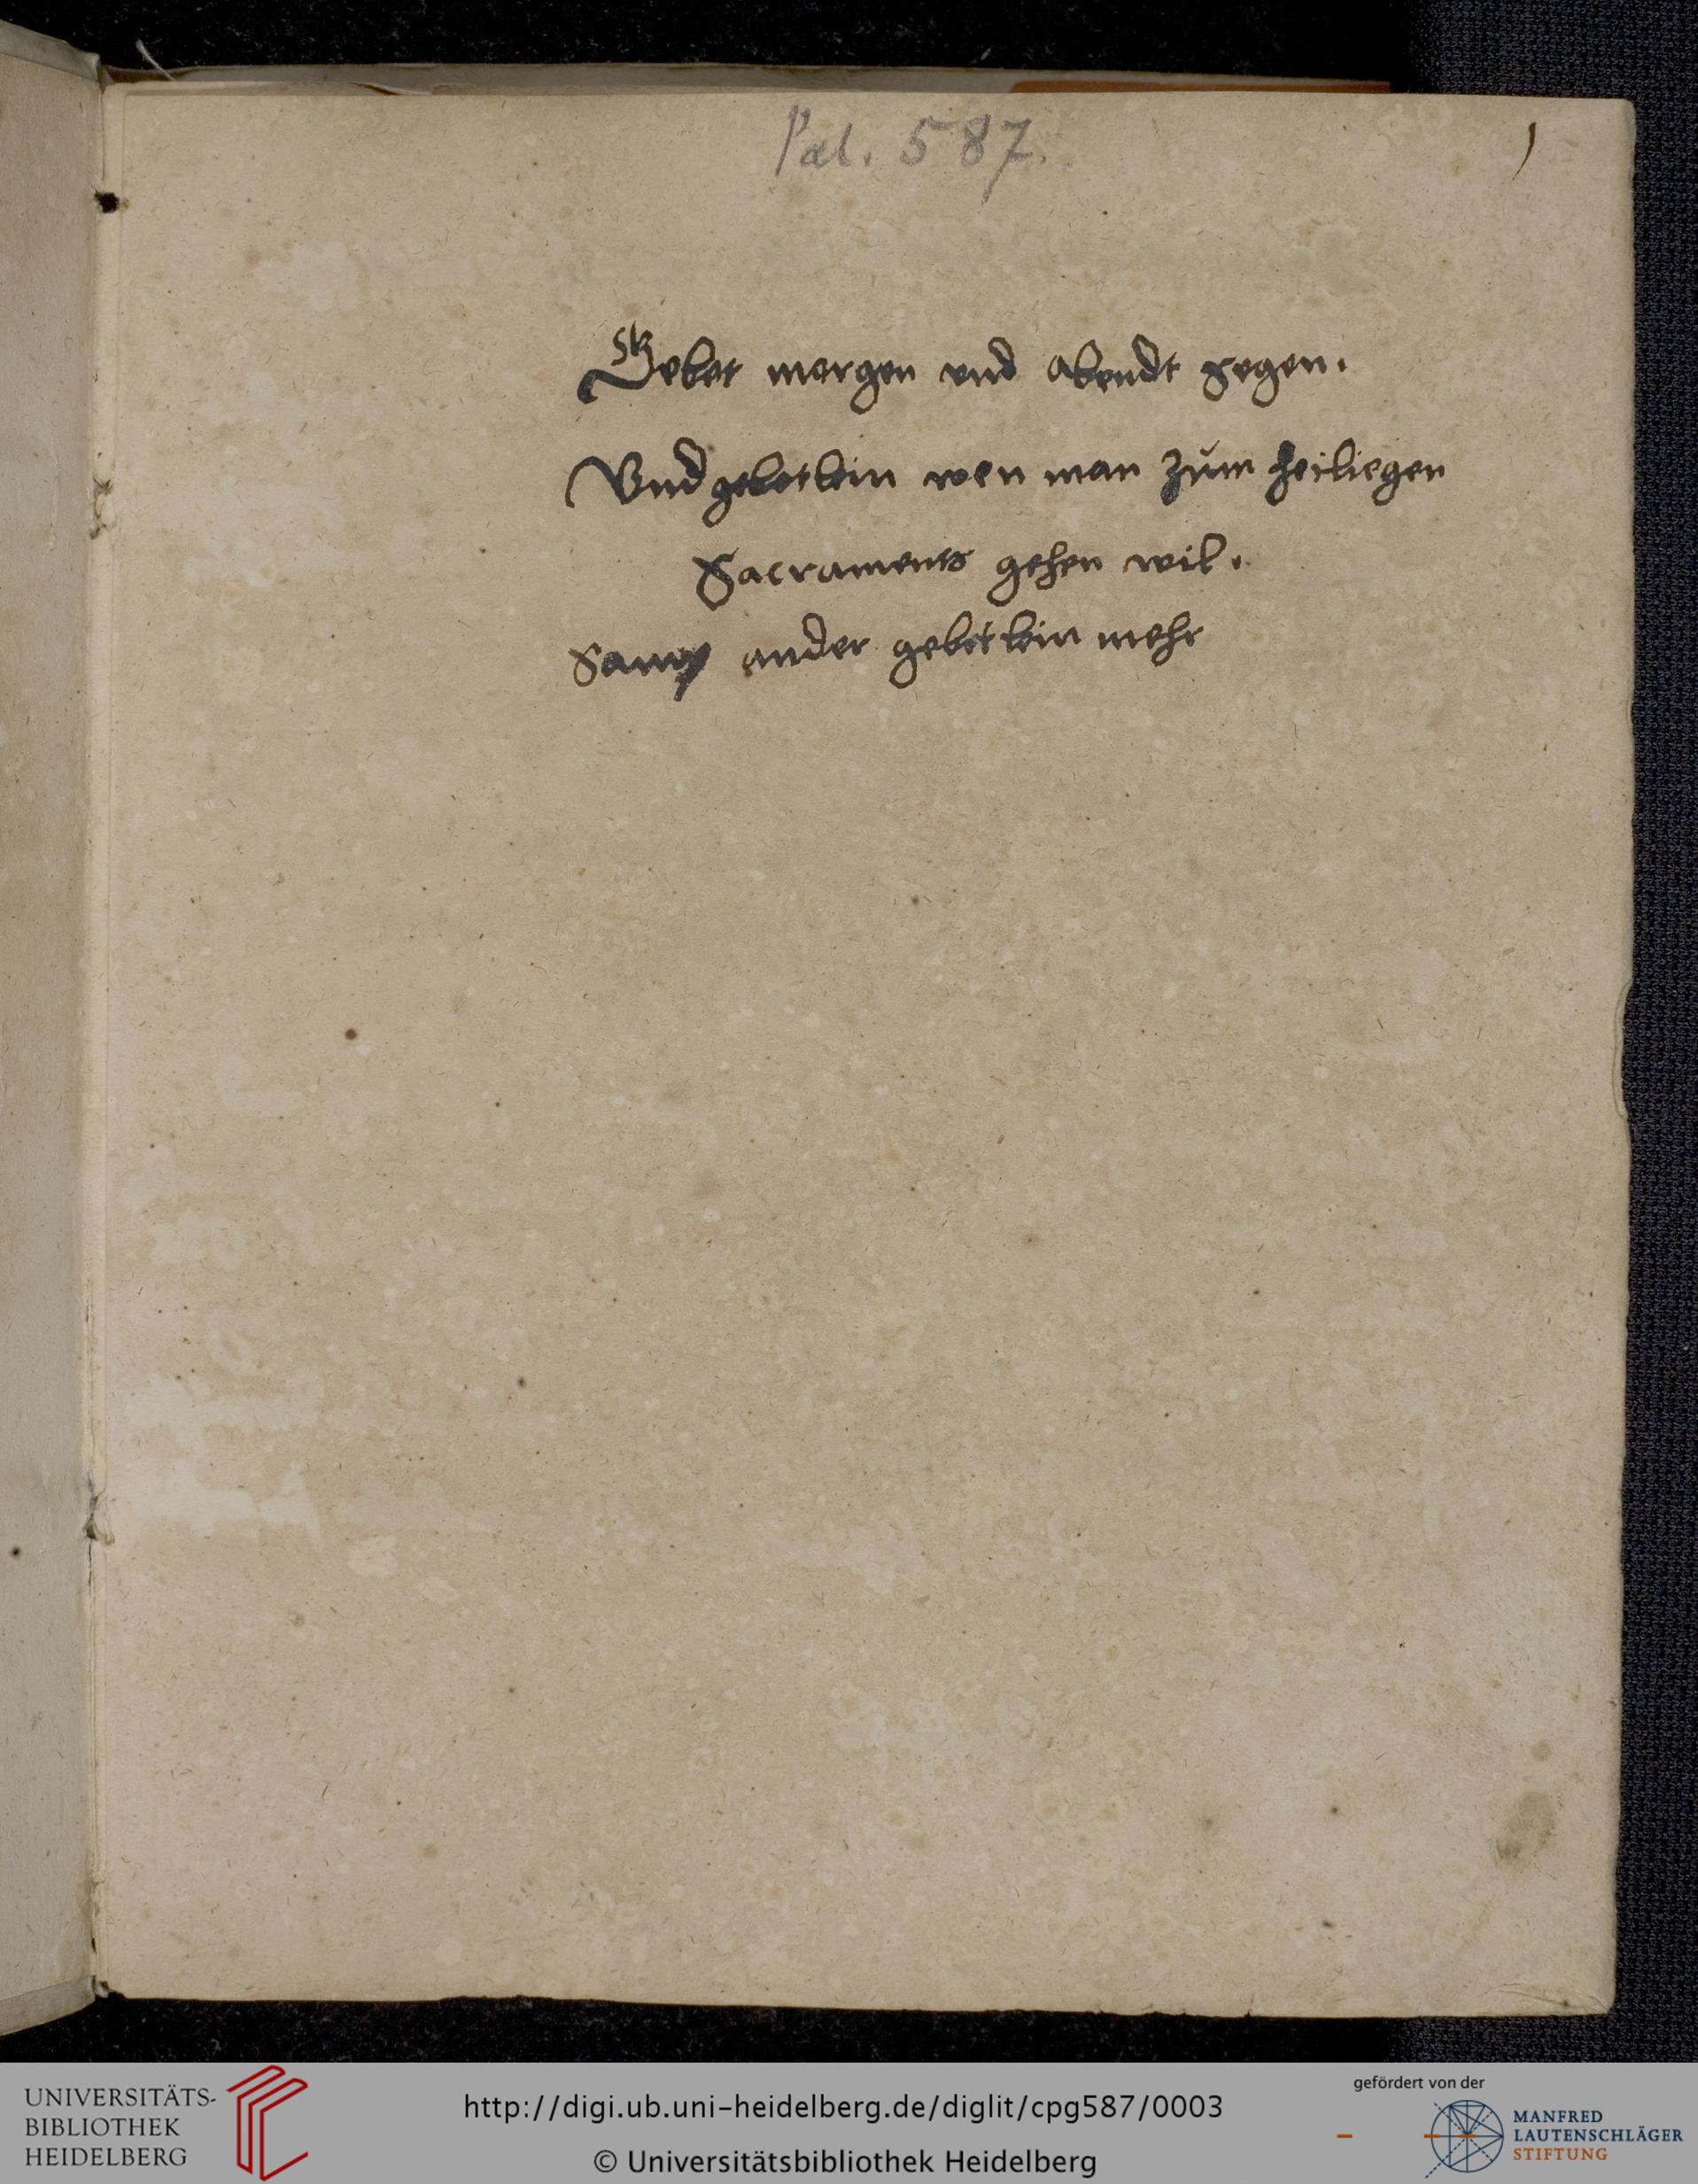 Pal. 587.
1
Gebet morgen vnd abendt segen.
Vnd gebetlein wen man zum heiliegen
Sacraments gehen wil.
ander gebetlein mehr
UNIVERSITÄTS-
BIBLIOTHEK
HEIDELBERG
http://digi.ub.uni-heidelberg.de/diglit/cpg587/0003
© Universitätsbibliothek Heidelberg
gefördert von der
MANFRED
LAUTENSCHLÄGER
STIFTUNG